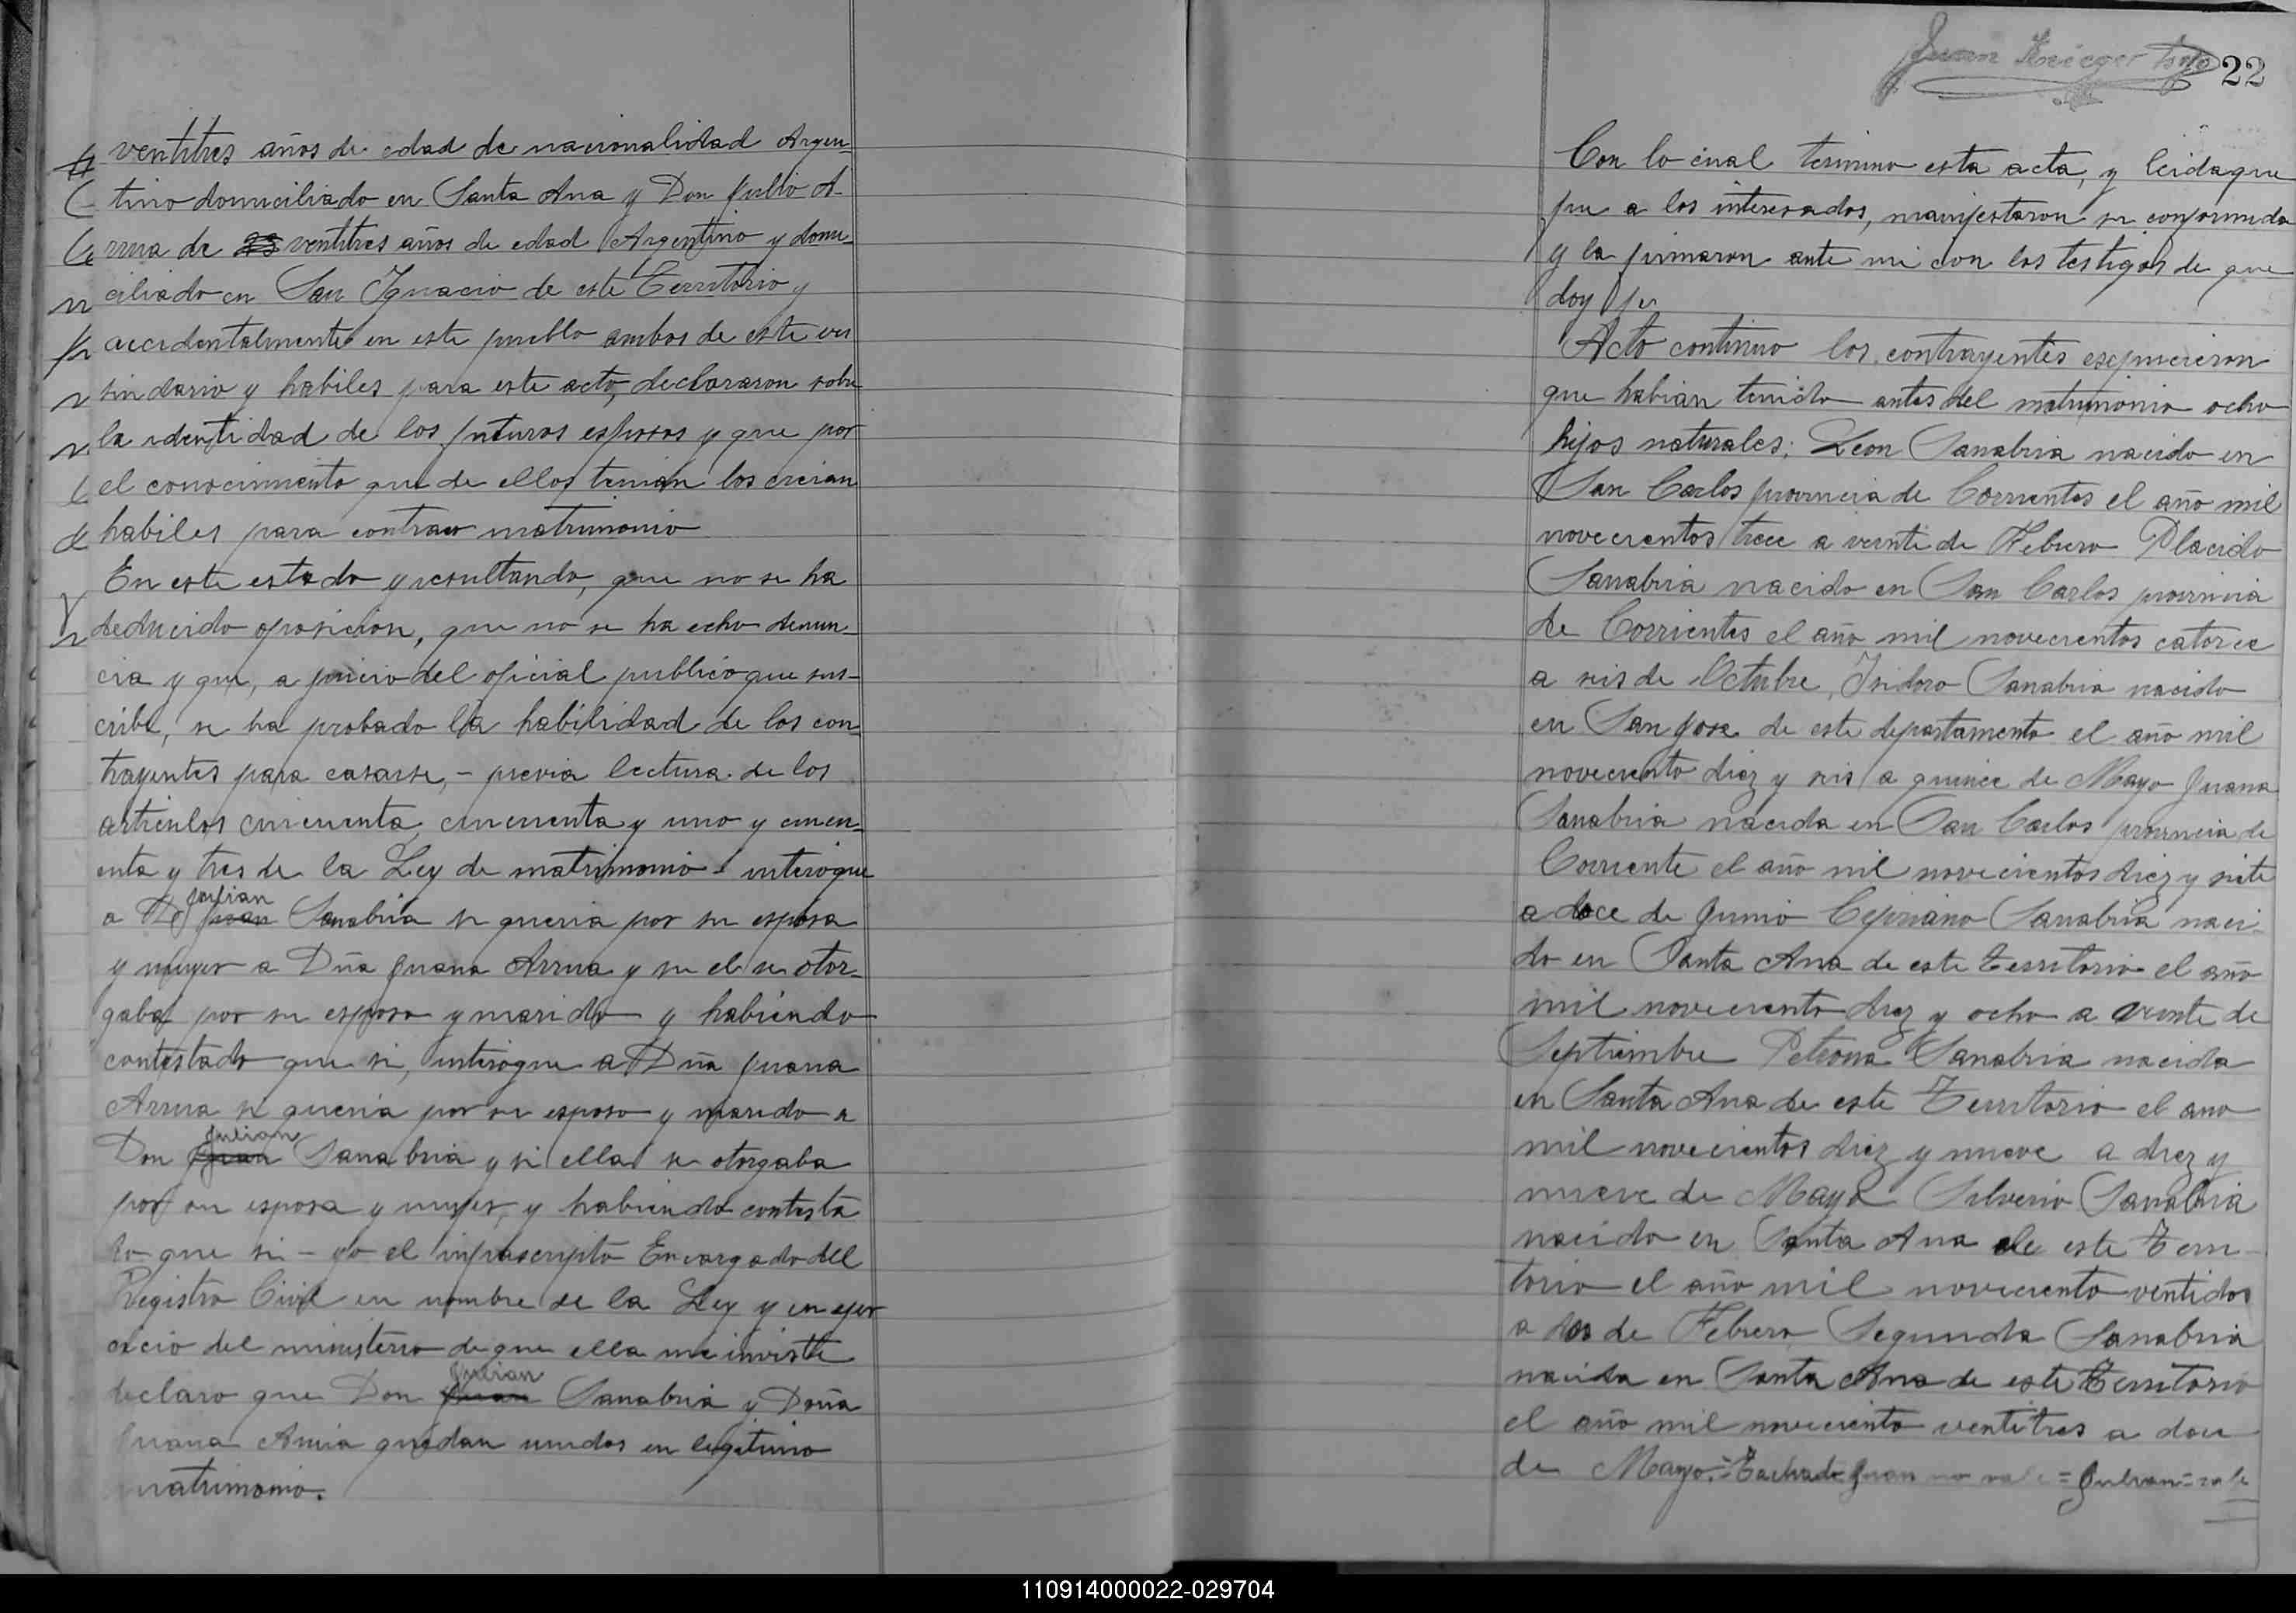 ventitres años de edad de nacionalidad Argen-
tino domiciliado en Santa Ana y Don Julio A-
rrua de 23 ventitres años de edad Argentino y domi-
ciliado en San Ignacio de este Territorio y
accidentalmente en este pueblo ambos de este ve
sindario y habiles para este acto, declararon sobre
la identidad de los futuros esposos y que por
el conocimiento que de ellos tenian los creian
habiles para contraer matrimonio
En este estado y resultando, que no se ha
deducido oposicion, que no se ha echo denun-
cia y que, a juicio del oficial publico que sus-
cribe, se ha probado la habilidad de los con-
trayentes para casarse, - previa lectura de los
articulos cincuenta, cincuenta y uno y cincu-
enta y tres de la Ley de matrimonio - interogue
Julian
a Dn Juan Sanabria si queria por su esposa
y mujer a Dña Juana Arrua y si el se otor-
gaba por su esposo y marido y habiendo
contestado que si, interogue a Dña Juana
Arrua si queria por su esposo y marido a
Julian
Don Juan Sanabria y si ella se otorgaba
por su esposa y mujer, y habiendo contesta
do que si - yo el infrascripto Encargado del
Registro Civil en nombre de la Ley y en ejer
cicio del ministerio de que ella me inviste
Julian
declaro que Don Juan Sanabria y Doña
Juana Arrua quedan unidos en legitimo
matrimonio.
Juan Krieger 22
Con lo cual termino esta acta, y leida que
fue a los interesados, manifestaron su conformida
y la firmaron ante mi con los testigos de que
doy fe
Acto continuo los contrayentes espucieron
que habian tenido antes del matrimonio ocho
hijos naturales; Leon Sanabria nacido en
San Carlos provincia de Corrientes el año mil
novecientos trece a veinte de Febrero Placido
Sanabria nacido en San Carlos provincia
de Corrientes el año mil novecientos catorce
a seis de Octubre, Isidoro Sanabria nacido
en San Jose de este departamento el año mil
noveciento diez y seis a quince de Mayo Juana
Sanabria nacida en San Carlos provincia de
Corriente el año mil novecientos diez y siete
a doce de Junio Cipriano Sanabria naci-
do en Santa Ana de este Territorio el año
mil noveciento diez y ocho a veinte de
Septiembre Petrona Sanabria nacida
en Santa Ana de este Territorio el ano
mil novecientos diez y nueve a diez y
nueve de Mayo Silverio Sanabria
nacido en Santa Ana de este Terri-
torio el año mil noveciento ventidos
a dos de Febrero Segunda Sanabria
nacida en Santa Ana de este Territorio
el año mil noveciento ventitres a doce
de Mayo.=Tachado Juan no vale = Julian=vale
110914000022-029704